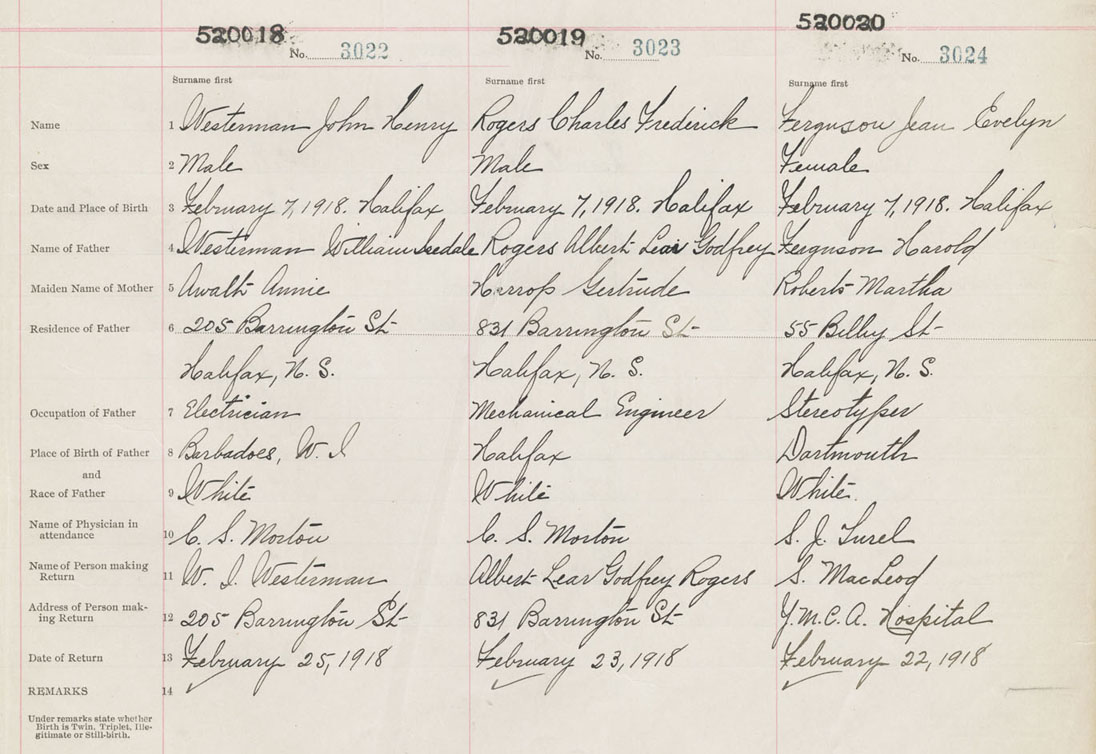 520018 520019 520020
No. 3022 No. 3023 No. 3024
Surname first Surname first Surname first
Name 1 Westerman John Henry Rogers Charles Frederick Ferguson Jean Evelyn
Sex 2 Male Male Female
Date and Place of Birth 3 February 7, 1918. Halifax February 7, 1918. Halifax February 7, 1918. Halifax
Name of Father 4 Westerman William Rogers Albert Lear Godfrey Ferguson Harold
Maiden Name of Mother 5 Awalt Annie Herrop Gertrude Roberts Martha
Residence of Father 6 205 Barrington St 831 Barrington St 55 Bilby St
Halifax, N. S. Halifax, N. S. Halifax, N. S.
Occupation of Father 7 Electrician Mechanical Engineer Stereotyper
Place of Birth of Father 8 Barbadoes, W. I Halifax Dartmouth
and
Race of Father 9 White White White.
Name of Physician in
attendance 10 C. S. Morton C. S. Morton S. J.
Name of Person making
Return 11 W. I. Westerman Albert Lear Godfrey Rogers S. MacLeod
Address of Person mak-
ing Return 12 205 Barrington St 831 Barrington St Y.M.C.A. Hospital
Date of Return 13 February 25, 1918 February 23, 1918 February 22, 1918
REMARKS 14
Under remarks state whether
Birth is Twin, Triplet, Ille-
gitimate or Still-birth.